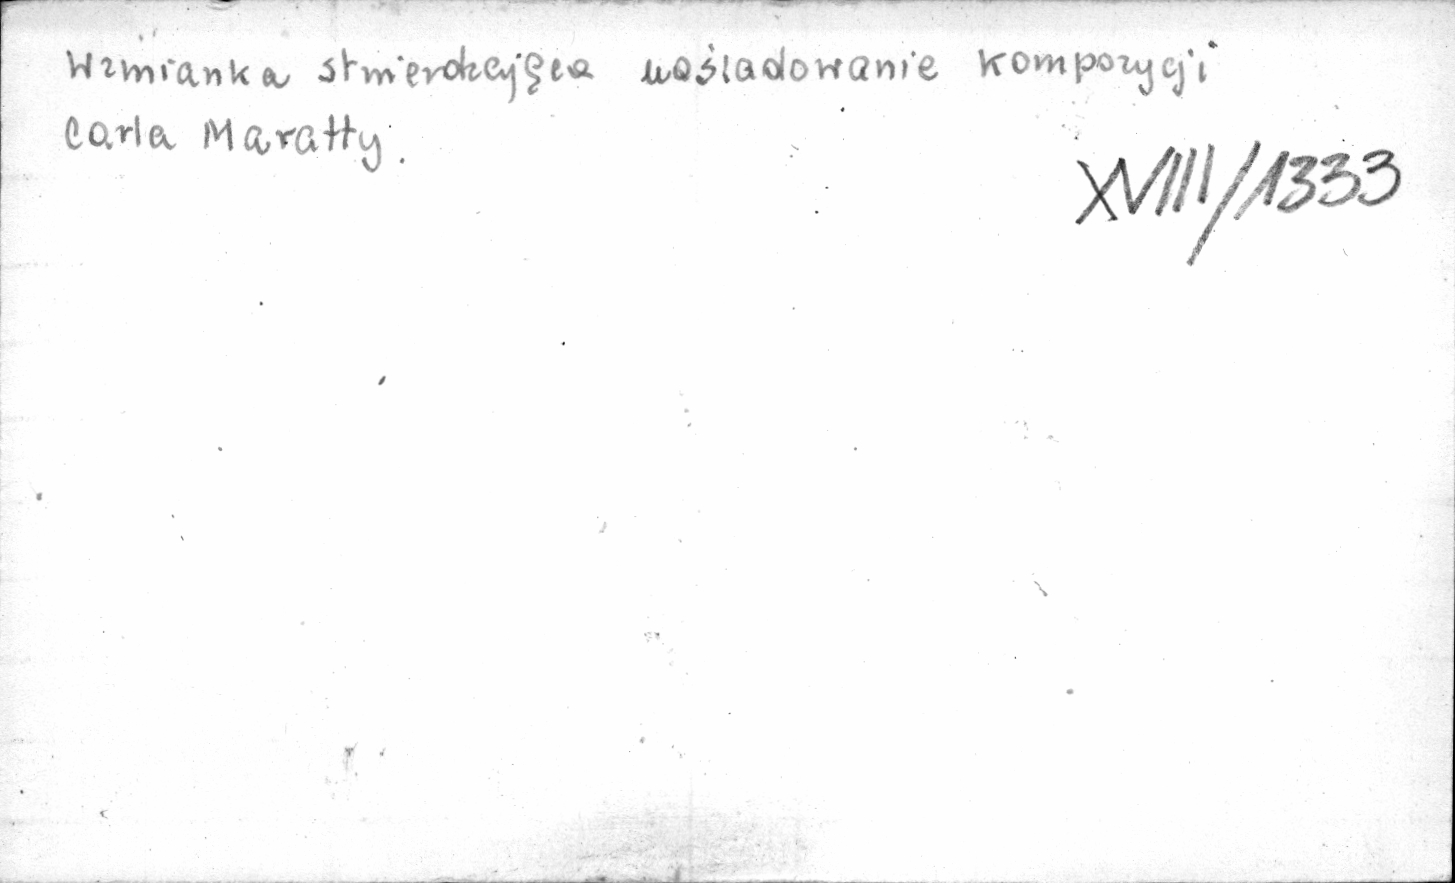 Wzmianka stwierdzająca naśladowanie kompozycji
Carla Maratty.
XVIII/1333